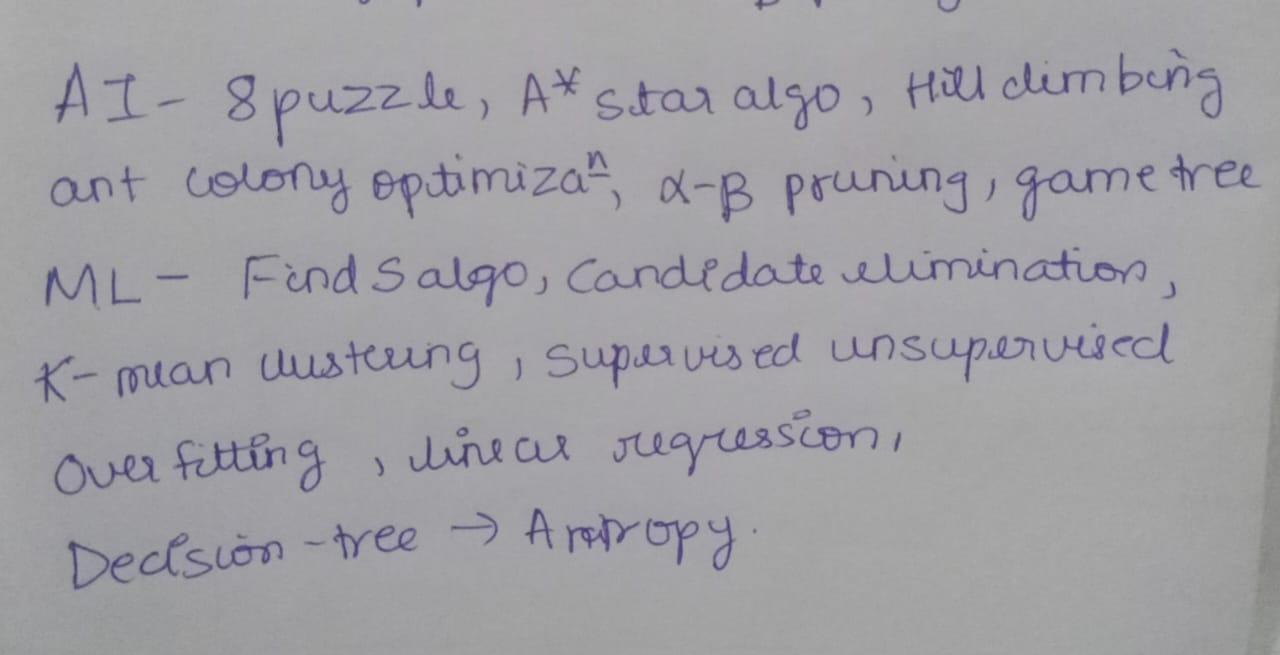 AI - 8 puzzle, A* star algo, Hill climbing
ant colony optimizaⁿ, α-β pruning, game tree
ML - Find S algo, Candidate elimination,
K-mean clustering, supervised unsupervised
Over fitting, linear regression,
Decision-tree → Antropy.